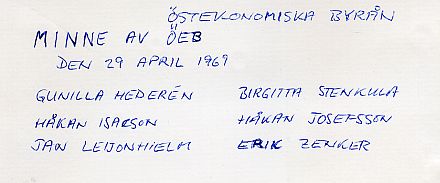 ÖSTEKONOMISKA BYRÅN
MINNE AV ÖEB
DEN 29 APRIL 1969
GUNILLA HEDERÉN BIRGITTA STENKULA
HÅKAN ISACSON HÅKAN JOSEFSSON
JAN LEIJONHIELM ERIK ZENKER